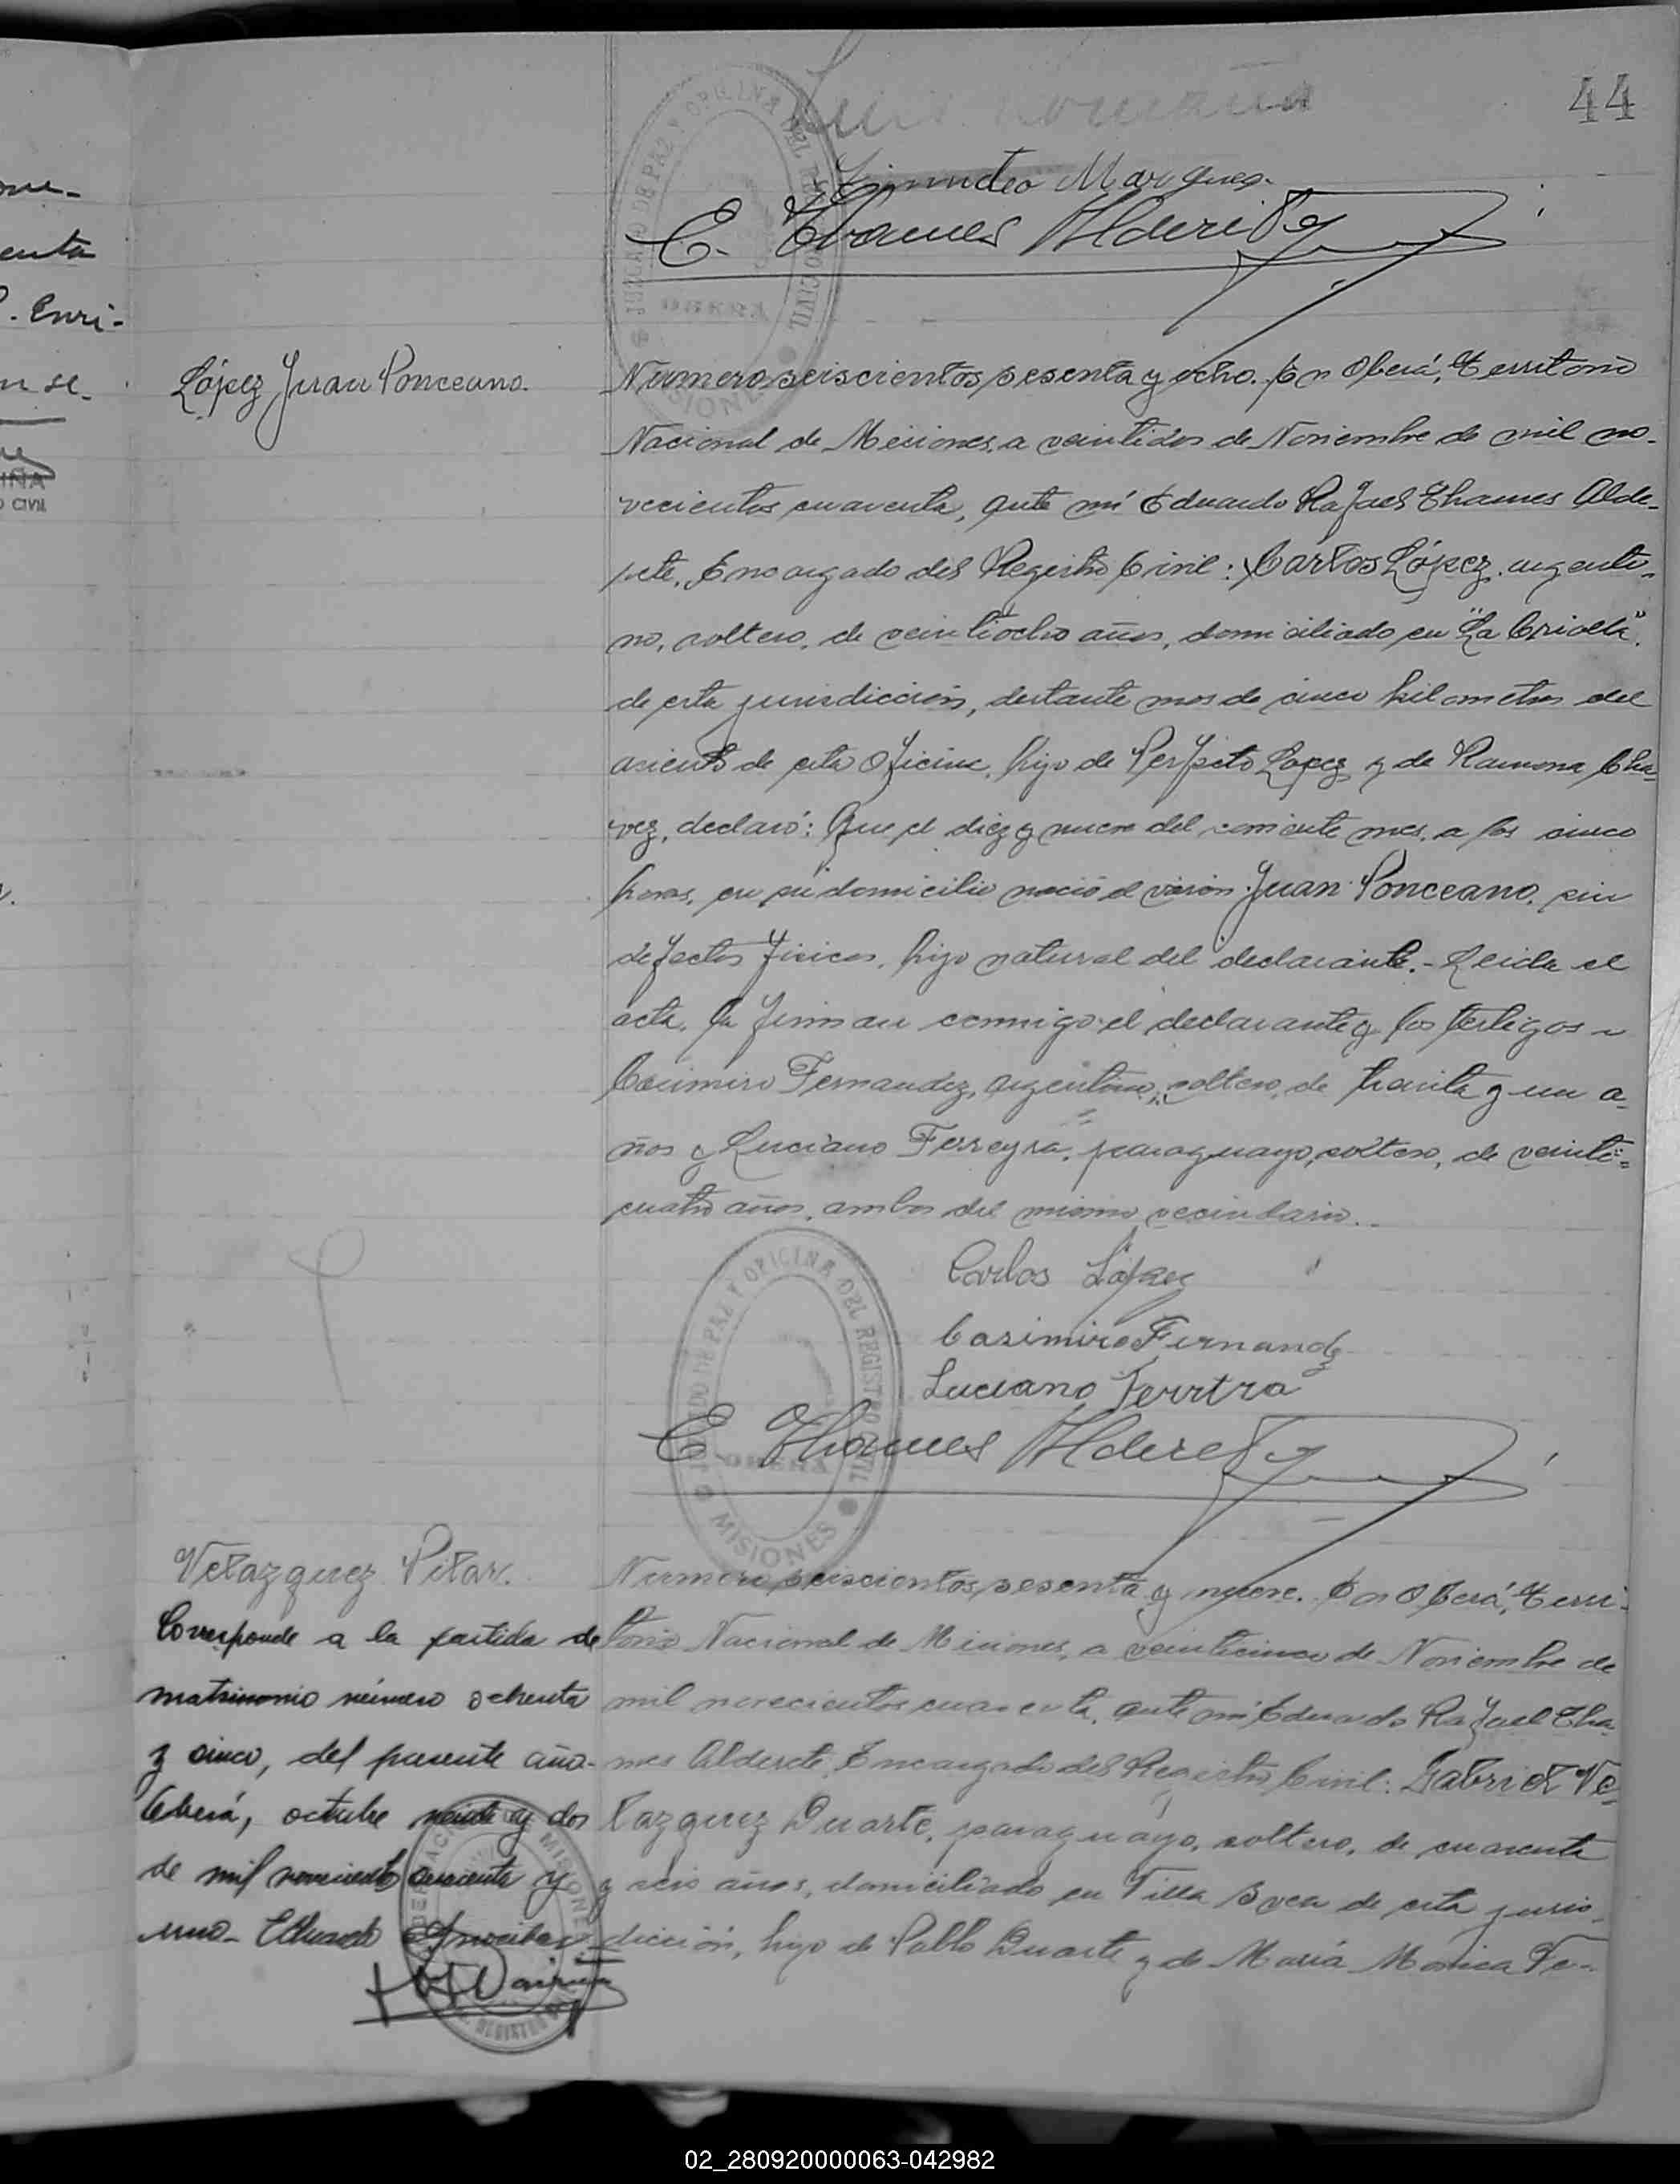 44
Marques.
E. Thames Alderete
JUZGADO DE PAZ Y OFICINA DEL REGISTRO CIVIL
OBERA
MISIONES
enta
. Enri-
n se
CIVIL
López Juan Ponceano.
Numero seiscientos sesenta y ocho. En Oberá, Territorio
Nacional de Misiones, a veintidos de Noviembre de mil no-
vecientos cuarenta, ante mí Eduardo Rafael Thames Alde-
rete, Encargado del Registro Civil: Carlos López, argenti-
no, soltero, de veintiocho años, domiciliado en "La Criolla"
de esta jurisdicción, distante mas de cinco kilometros del
asiento de esta Oficina, hijo de Perfecto Lopez y de Ramona Cha-
vez, declaró: Que el diez y nueve del corriente mes, a las cinco
horas, en su domicilio nació el varón Juan Ponceano, sin
defectos fisicos, hijo natural del declarante.- Leida el
acta, la firman conmigo el declarante y los testigos
Casimiro Fernandez, argentino, soltero, de treinta y un a-
ños y Luciano Ferreyra, paraguayo, soltero, de veinti-
cuatro años, ambos del mismo vecindario.-
Carlos López
Casimiro Fernandz
Luciano Ferrtra
E Thames Alderete
JUZGADO DE PAZ Y OFICINA DEL REGISTRO CIVIL
OBERA
MISIONES
Velazquez Pilar.
Corresponde a la partida de
matrimonio número ochenta
y cinco, del presente año-
Oberá, octubre veinte y dos
de mil novecientos cuarenta y
uno- Eduardo
Numero seiscientos sesenta y nueve. En Oberá, Terri-
torio Nacional de Misiones, a veinticinco de Noviembre de
mil novecientos cuarenta, ante mí Eduardo Rafael Tha-
mes Alderete, Encargado del Registro Civil: Gabriel Ve-
lazquez Duarte, paraguayo, soltero, de cuarenta
y seis años, domiciliado en Villa Svea de esta juris-
dicción, hijo de Pablo Duarte y de María Monica Ve-
02_280920000063-042982